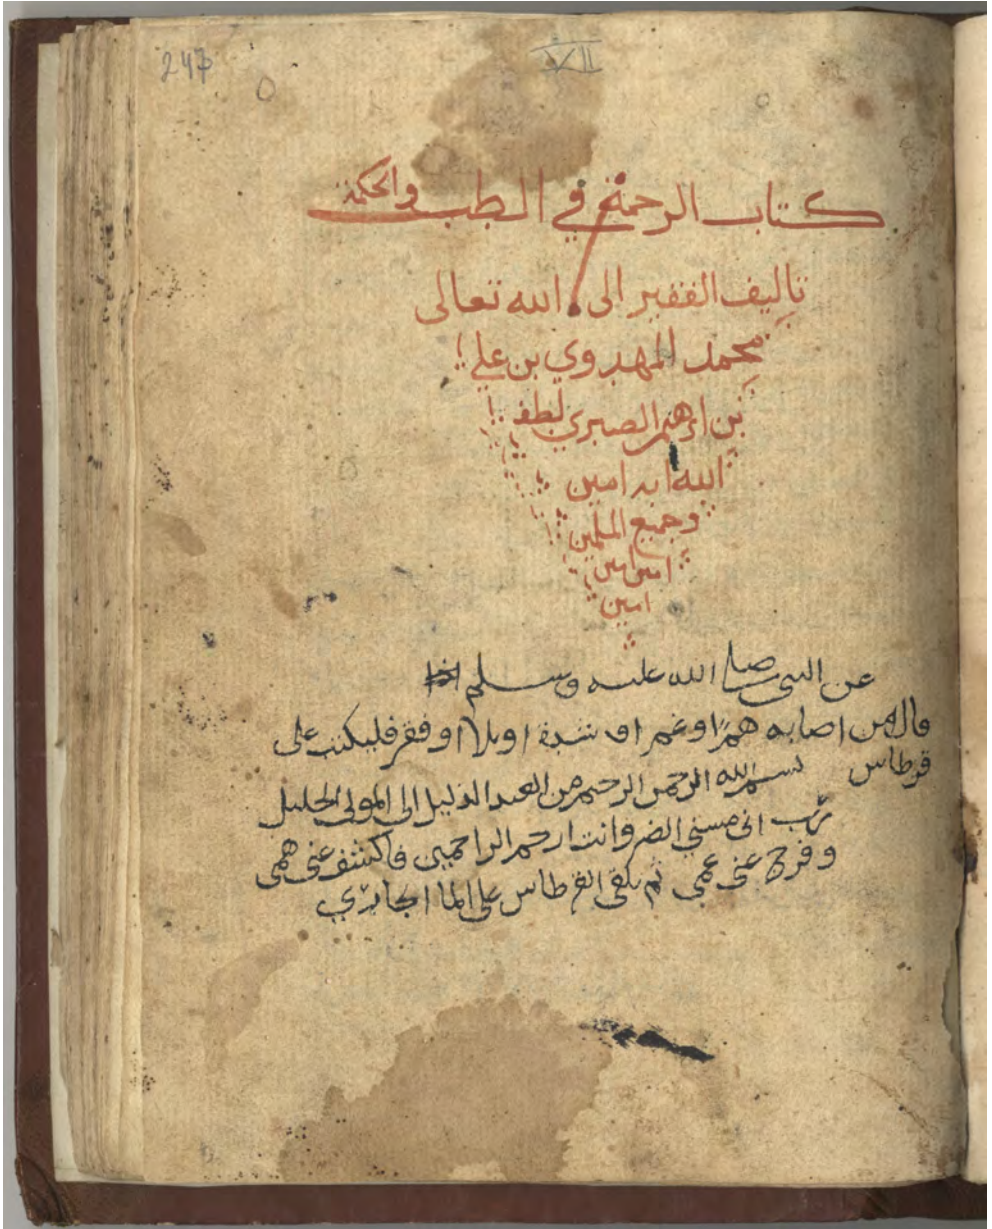 247
VII
كتاب الرحمة في الطب والحكمة
تاليف الفقير الى الله تعالى
محمد المهدوي بن علي
بن ابرهيم الصبري لطف
الله به امين
وجميع المسلمين
امين امين
امين
عن النبي صلى الله عليه وسلم
قال من اصابه هم او غم او شدة او بلا او فقر فليكتب على
قرطاس بسم الله الرحمن الرحيم من العبد الذليل الى المولى الجليل
رب اني مسني الضر وانت ارحم الراحمين فاكشف عني همي
وفرج عني غمي ثم يلقى القرطاس على الما الجاري